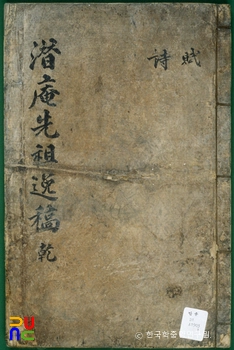 賦
詩
潛庵先祖逸稿 乾
© 한국학중앙연구원